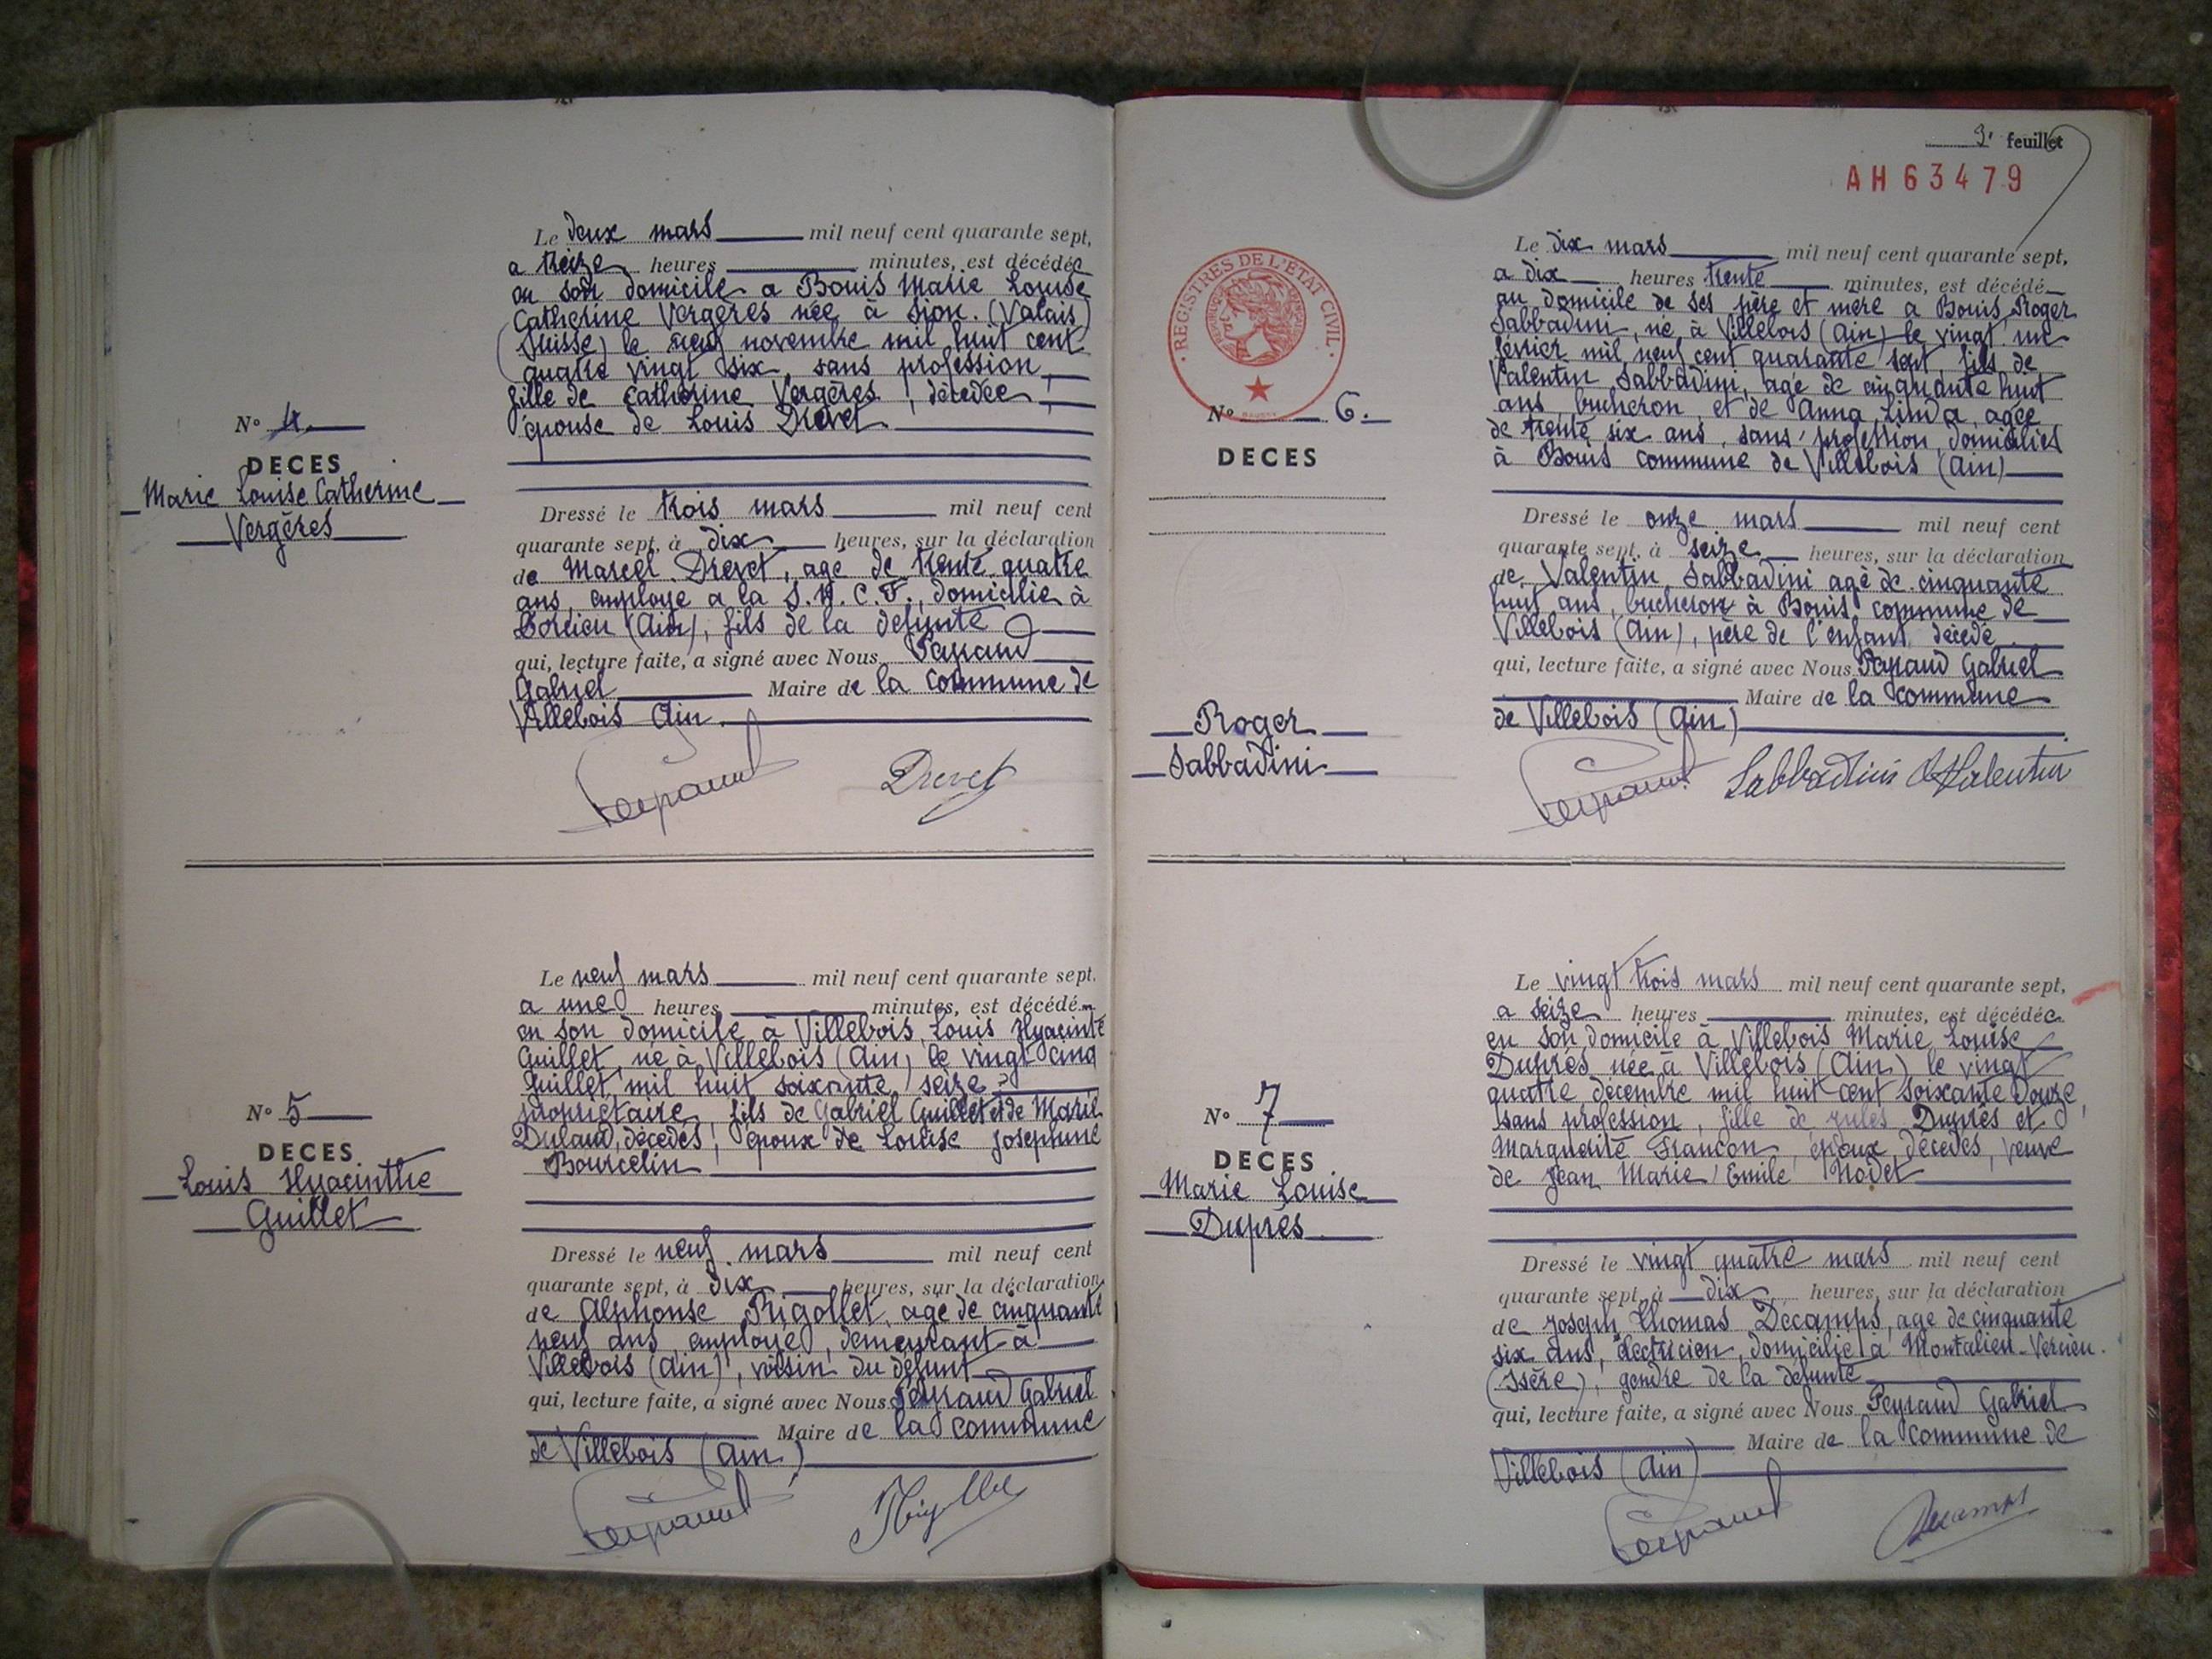 Le deux mars mil neuf cent quarante sept,
a treize heures minutes, est décédée
en son domicile a Bouis Marie Louise
Catherine Vergères née à Sion. (Valais)
(Suisse) le neuf novembre mil huit cent
quatre vingt six, sans profession,
fille de Catherine Vergères, décédée,
épouse de Louis Drevet.
N° 4
DECES
Marie Louise Catherine
Vergères
Dressé le trois mars mil neuf cent
quarante sept, à dix heures, sur la déclaration
de Marcel Drevet, agé de trente quatre
ans, employé a la S.N.C.F., domicilié à
(Ain), fils de la défunte
qui, lecture faite, a signé avec Nous Payraud
Gabriel Maire de la commune de
Villebois Ain.
Drevet
Le neuf mars mil neuf cent quarante sept.
a une heures minutes, est décédé
en son domicile à Villebois, Louis Hyacinte
Guillet, né à Villebois (Ain) le vingt cinq
Juillet mil huit soixante seize
propriétaire, fils de Gabriel Guillet et de Marie
décédés, époux de Louise Joséphine
Bourcelin
N° 5
DECES
Louis Hyacinthe
Guillet
Dressé le neuf mars mil neuf cent
quarante sept, à dix heures, sur la déclaration
de Alphonse Rigollet, agé de cinquante
neuf ans employé, demeurant à
Villebois (Ain), voisin du défunt
qui, lecture faite, a signé avec Nous Peyraud Gabriel
Maire de la commune
de Villebois (Ain)
3e feuillet
AH63479
REGISTRES DE L'ETAT CIVIL
Le dix mars mil neuf cent quarante sept,
a dix heures trente minutes, est décédé
au domicile de ses père et mère a Bouis, Roger
Sabbadini, né à Villebois (Ain) le vingt un
février mil neuf cent quarante sept, fils de
Valentin Sabbadini, agé de cinquante huit
ans, bucheron, et de Anna Linda, agée
de trente six ans, sans profession, domiciliés
à Bouis commune de Villebois (Ain)
N° 6.
DECES
Roger
Sabbadini
Dressé le onze mars mil neuf cent
quarante sept, à seize heures, sur la déclaration
de Valentin Sabbadini agé de cinquante
huit ans, bucheron à Bouis commune de
Villebois (Ain), père de l'enfant décédé
qui, lecture faite, a signé avec Nous Payraud Gabriel
Maire de la commune
de Villebois (Ain)
Sabbadini Valentin
Le vingt trois mars mil neuf cent quarante sept,
a seize heures minutes, est décédée
en son domicile à Villebois Marie Louise
Duprès née à Villebois (Ain) le vingt
quatre décembre mil huit cent soixante douze,
sans profession, fille de Jules Duprès et
Marguerite Francon, époux décédés, veuve
de Jean Marie Emile Nodet
N° 7
DECES
Marie Louise
Duprès
Dressé le vingt quatre mars mil neuf cent
quarante sept, à dix heures, sur la déclaration
de Joseph Thomas Décamps, agé de cinquante
six ans, électricien, domicilié à Montalieu-Vercieu.
(Isère), gendre de la défunte
qui, lecture faite, a signé avec Nous Peyraud Gabriel
Maire de la commune de
Villebois (Ain)